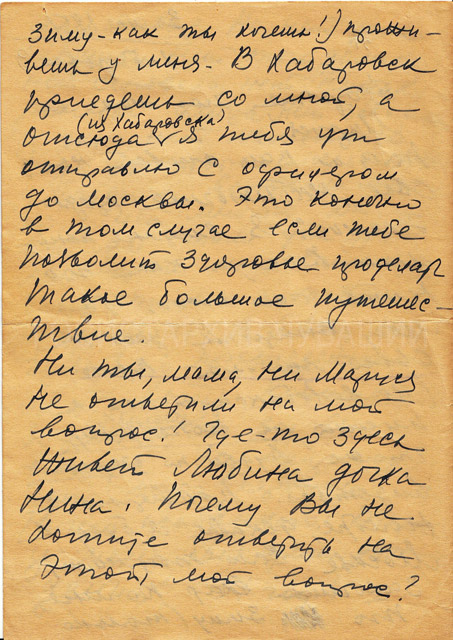 зиму - как ты хочешь!) прожи-
вешь у меня. В Хабаровск
приедешь со мной, а
(из Хабаровска)
отсюда я тебя уж
отправлю с офицером
до Москвы. Это конечно
в том случае если тебе
позволит здоровье проделать
такое большое путешес-
твие.
Ни ты, мама, ни Маруся
не ответили на мой
вопрос! Где-то здесь
живет Любина дочка
Нина. Почему Вы не
хотите ответить на
этот мой вопрос?